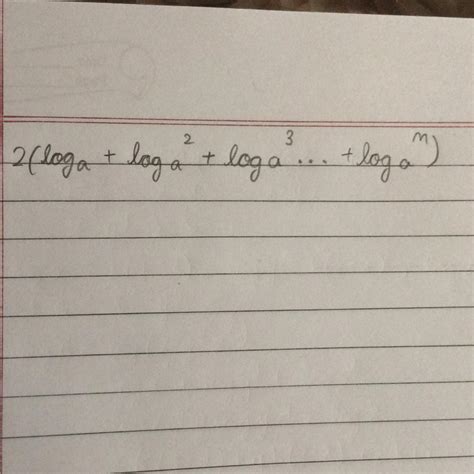 2(log a + log a² + log a³ ... + log aⁿ)